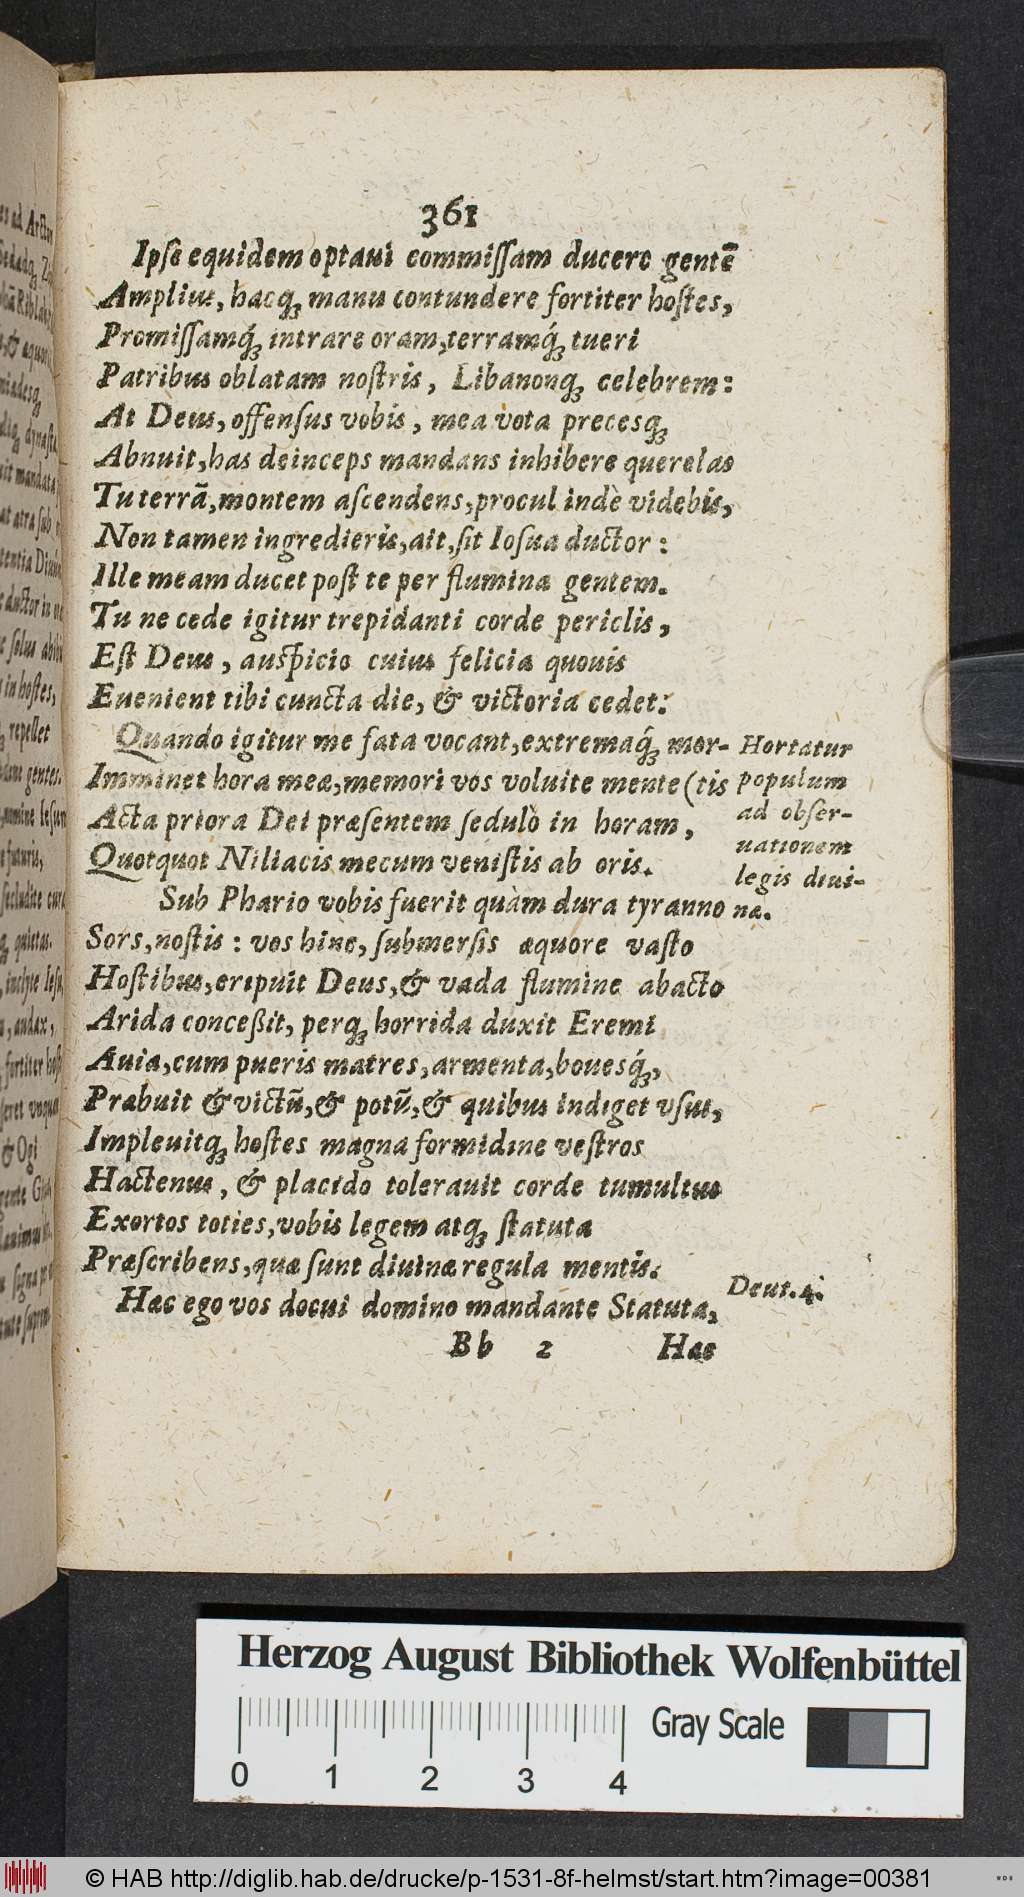 361
Ipse equidem optaui commissam ducere gentē
Amplius, hacq́ꝫ manu contundere fortiter hostes,
Promissamq́ꝫ intrare oram, terramq́ꝫ tueri
Patribus oblatam nostris, Libanonqꝫ celebrem:
At Deus, offensus vobis, mea vota precesqꝫ
Abnuit, has deinceps mandans inhibere querelas
Tu terrã, montem ascendens, procul indè videbis,
Non tamen ingredieris, ait, sit Iosua ductor:
Ille meam ducet post te per flumina gentem.
Tu ne cede igitur trepidanti corde periclis,
Est Deus, auspicio cuius felicia quouis
Euenient tibi cuncta die, & victoria cedet:
Quando igitur me fata vocant, extremaq́ꝫ mor-
Imminet hora meæ, memori vos voluite mente (tis
Acta priora Dei præsentem sedulò in horam,
Quotquot Niliacis mecum venistis ab oris.
Sub Phario vobis fuerit quàm dura tyranno
Sors, nostis: vos hinc, submersis æquore vasto
Hostibus, eripuit Deus, & vada flumine abacto
Arida conceßit, perqꝫ horrida duxit Eremi
Auia, cum pueris matres, armenta, bouesq́ꝫ,
Præbuit & victũ, & potũ, & quibus indiget vsus,
Impleuitqꝫ hostes magna formidine vestros
Hactenus, & placido tolerauit corde tumultus
Exortos toties, vobis legem atqꝫ statuta
Præscribens, quæ sunt diuinæ regula mentis.
Hæc ego vos docui domino mandante Statuta,
Bb 2 Hæc
Hortatur
populum
ad obser-
uationem
legis diui-
næ.
Deut. 4.
Herzog August Bibliothek Wolfenbüttel
Gray Scale
0 1 2 3 4
© HAB http://diglib.hab.de/drucke/p-1531-8f-helmst/start.htm?image=00381